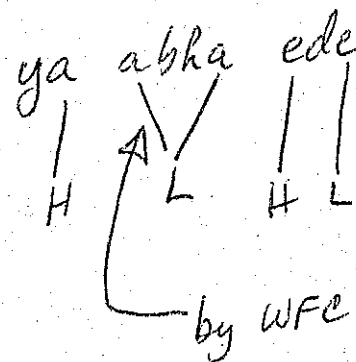 ya abha ede
H L H L
by WFC